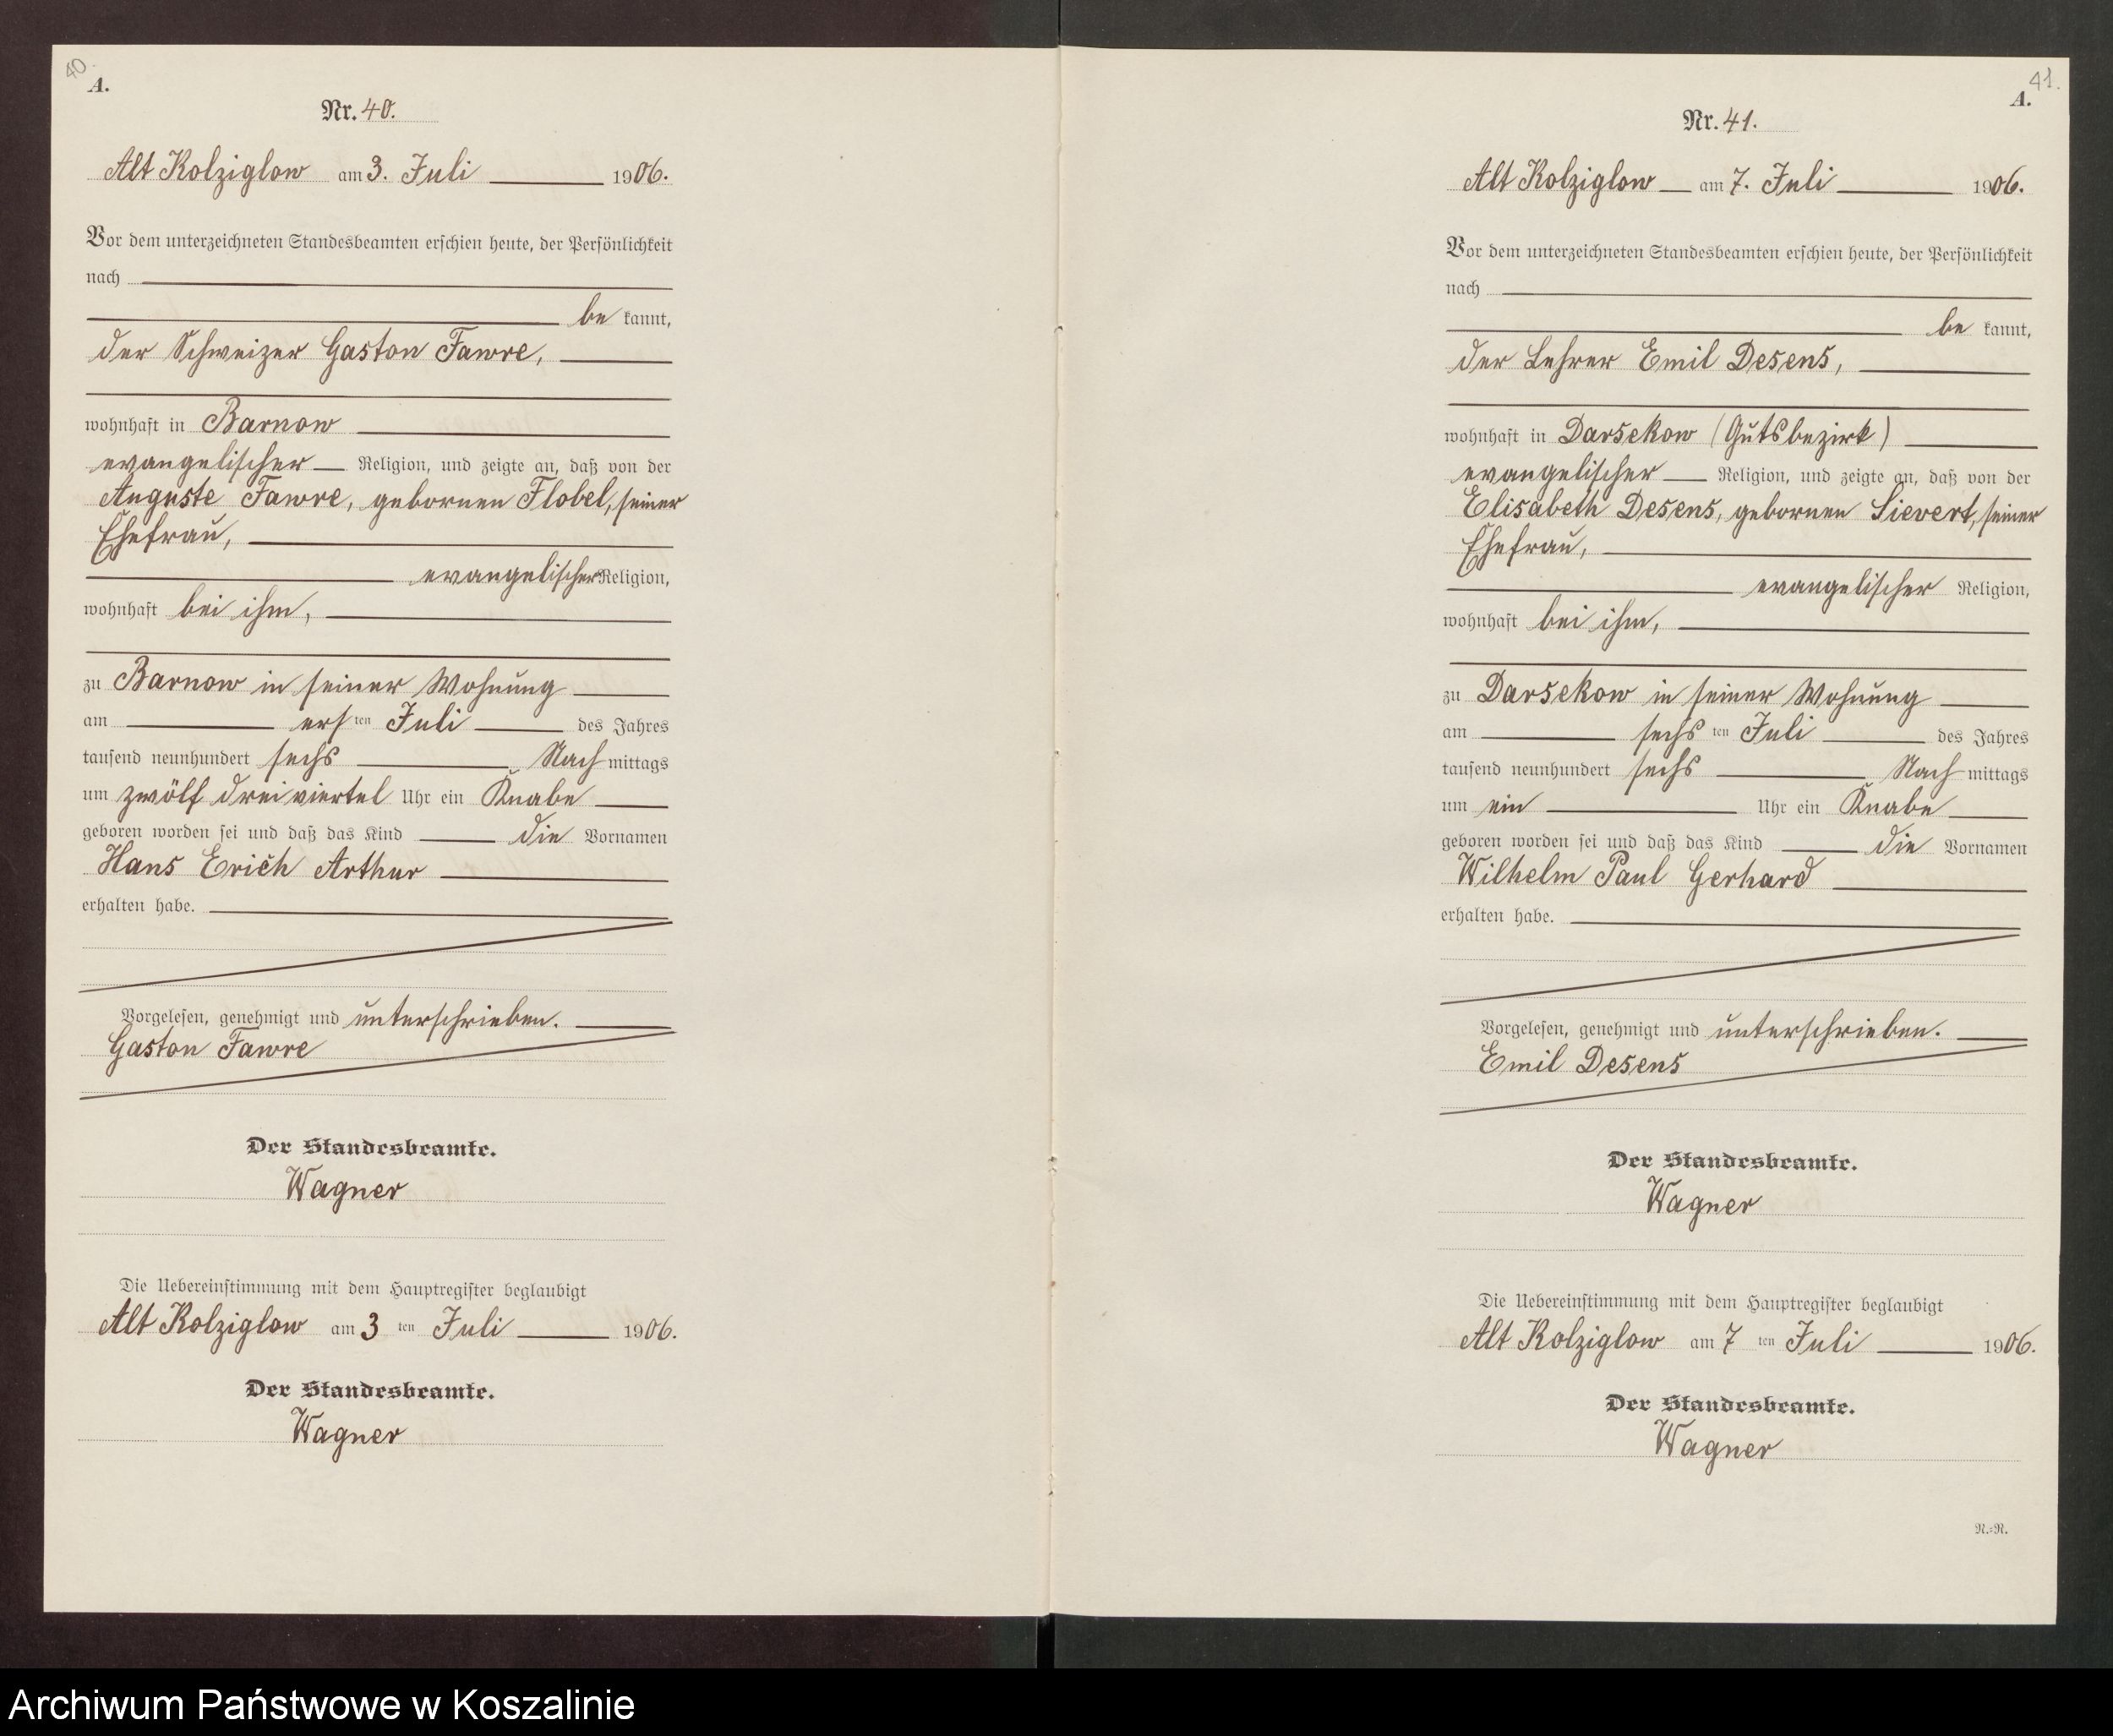 40.
A.
Nr. 40.
Alt Kolziglow am 3. Juli 1906.
Vor dem unterzeichneten Standesbeamten erschien heute, der Persönlichkeit
nach
be kannt,
der Schweizer Gaston Fawre,
wohnhaft in Barnow
evangelischer Religion, und zeigte an, daß von der
Auguste Fawre, gebornen Flobel, seiner
Ehefrau,
evangelischer Religion,
wohnhaft bei ihm,
zu Barnow in seiner Wohnung
am ersten Juli des Jahres
tausend neunhundert sechs Nachmittags
um zwölf dreiviertel Uhr ein Knabe
geboren worden sei und daß das Kind die Vornamen
Hans Erich Arthur
erhalten habe.
Vorgelesen, genehmigt und unterschrieben.
Gaston Fawre
Der Standesbeamte.
Wagner
Die Uebereinstimmung mit dem Hauptregister beglaubigt
Alt Kolziglow am 3 ten Juli 1906.
Der Standesbeamte.
Wagner
41.
A.
Nr. 41.
Alt Kolziglow am 7. Juli 1906.
Vor dem unterzeichneten Standesbeamten erschien heute, der Persönlichkeit
nach
be kannt,
der Lehrer Emil Desens,
wohnhaft in Darsekow (Gutsbezirk)
evangelischer Religion, und zeigte an, daß von der
Elisabeth Desens, gebornen Sievert, seiner
Ehefrau,
evangelischer Religion,
wohnhaft bei ihm,
zu Darsekow in seiner Wohnung
am sechs ten Juli des Jahres
tausend neunhundert sechs Nachmittags
um ein Uhr ein Knabe
geboren worden sei und daß das Kind die Vornamen
Wilhelm Paul Gerhard
erhalten habe.
Vorgelesen, genehmigt und unterschrieben.
Emil Desens
Der Standesbeamte.
Wagner
Die Uebereinstimmung mit dem Hauptregister beglaubigt
Alt Kolziglow am 7 ten Juli 1906.
Der Standesbeamte.
Wagner
N.=N.
Archiwum Państwowe w Koszalinie